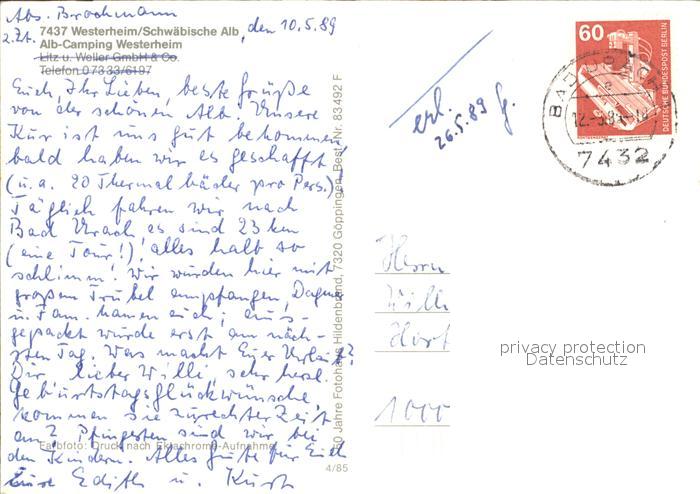 Abs. Brachmann
z.Zt. 7437 Westerheim/Schwäbische Alb, den 10.5.89
Alb-Camping Westerheim
Litz u. Weller GmbH & Co.
Telefon 07333/6197
Euch, Ihr Lieben, beste Grüße
von der schönen Alb. Unsere
Kur ist uns gut bekommen
bald haben wir es geschafft
(u.a. 20 Thermalbäder pro Pers.)
Täglich fahren wir nach
Bad Urach es sind 23 km
(eine Tour!) alles halb so
schlimm. Wir wurden hier mit
großem Trubel empfangen, Dagmar
u. Fam. kamen auch; aus-
gepackt wurde erst am näch-
sten Tag. Was macht Euer Urlaub?
Dir, lieber Willi, sehr herzl.
Geburtstagsglückwünsche,
kommen sie zurechter Zeit
am 2 Pfingsten sind wir bei
den Kindern. Alles Gute für Euch
Eure Edith u. Kurt
Farbfoto: Druck nach Ektachrome-Aufnahme
4/85
50 Jahre Fotohaus Hildenbrand, 7320 Göppingen, Best.-Nr. 83492 F
erl.
26.5.89 G.
60
DEUTSCHE BUNDESPOST BERLIN
BAD URACH
12.-5.89-
7432
Herrn
Willi
1000
privacy protection
Datenschutz